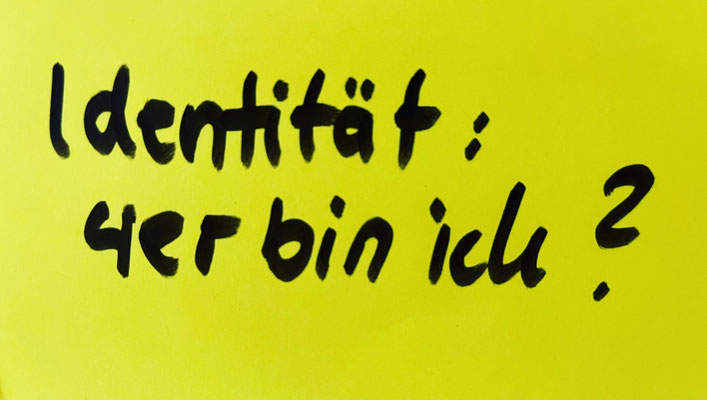 Identität:
wer bin ich?